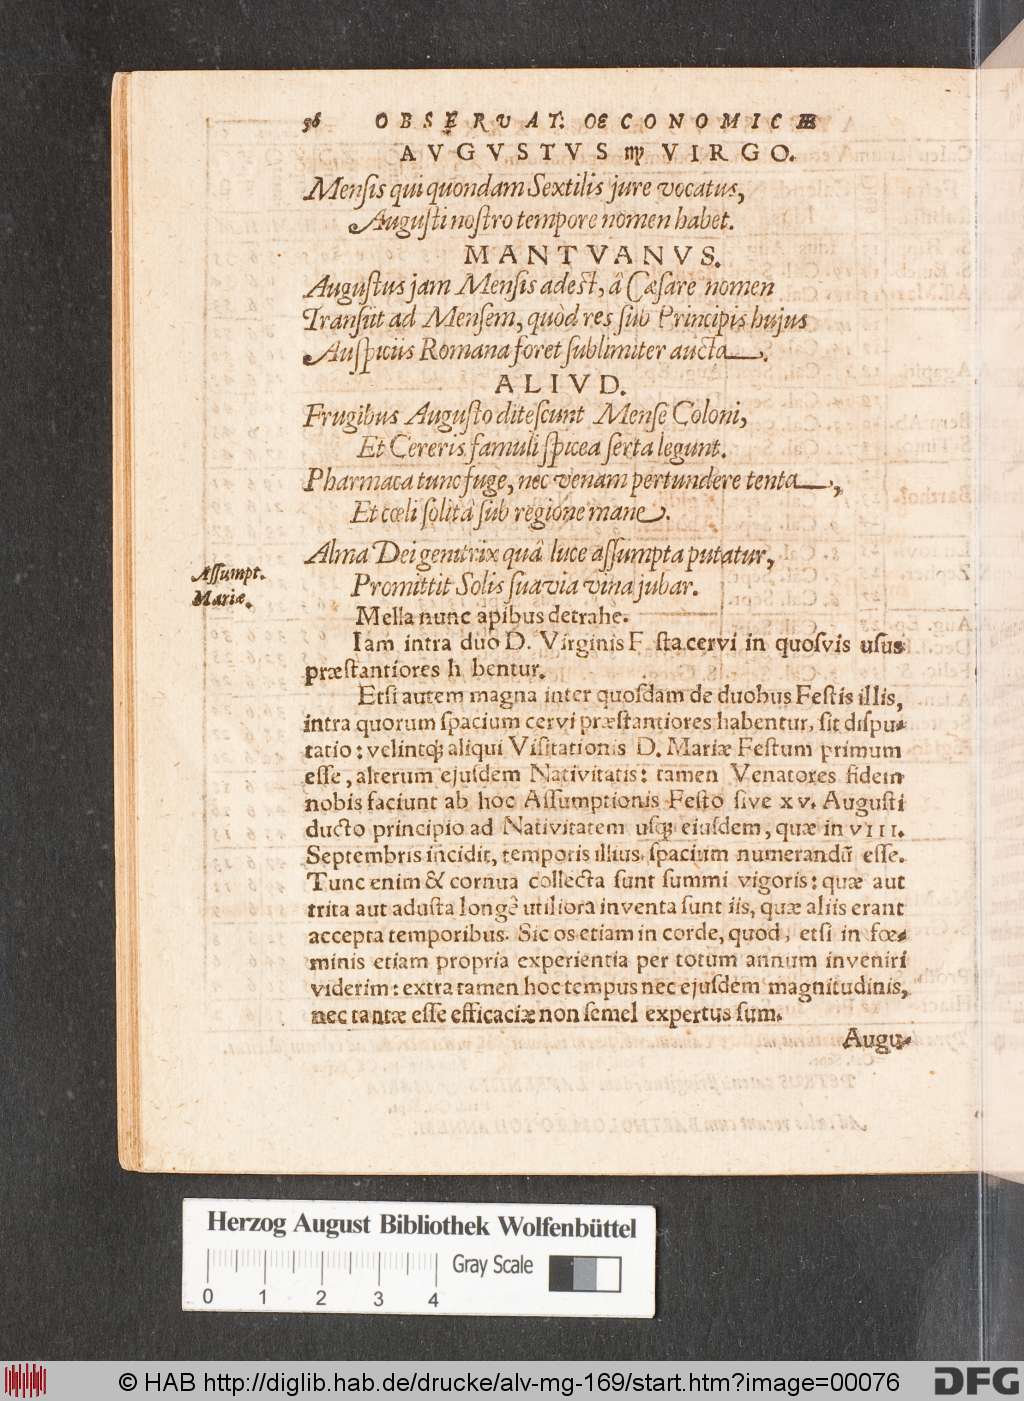 56 OBSERVAT: OECONOMICÆ
AVGVSTVS ♍ VIRGO.
Mensis qui quondam Sextilis jure vocatus,
Augusti nostro tempore nomen habet.
MANTVANVS.
Augustus jam Mensis adest, â Cæsare nomen
Transiit ad Mensem, quòd res sub Principis hujus
Auspiciis Romana foret sublimiter aucta.
ALIVD.
Frugibus Augusto ditescunt Mense Coloni,
Et Cereris famuli spicea serta legunt.
Pharmaca tunc fuge, nec venam pertundere tenta,
Et cœli solitâ sub regione mane.
Alma Dei genitrix quâ luce assumpta putatur,
Assumpt.
Mariæ.
Promittit Solis suavia vina jubar.
Mella nunc apibus detrahe.
Iam intra duo D. Virginis F sta cervi in quosvis usus
præstantiores h bentur.
Etsi autem magna inter quosdam de duobus Festis illis,
intra quorum spacium cervi præstantiores habentur, sit dispu-
tatio: velintq; aliqui Visitationis D. Mariæ Festum primum
esse, alterum ejusdem Nativitatis: tamen Venatores fidem
nobis faciunt ab hoc Assumptionis Festo sive xv. Augusti
ducto principio ad Nativitatem usq; eiusdem, quæ in VIII.
Septembris incidit, temporis illius spacium numerandũ esse.
Tunc enim & cornua collecta sunt summi vigoris: quæ aut
trita aut adusta longè utiliora inventa sunt iis, quæ aliis erant
accepta temporibus. Sic os etiam in corde, quod, etsi in fœ-
minis etiam propria experientia per totum annum inveniri
viderim: extra tamen hoc tempus nec ejusdem magnitudinis,
nec tantæ esse efficaciæ non semel expertus sum.
Augu-
Herzog August Bibliothek Wolfenbüttel
Gray Scale
0 1 2 3 4
© HAB http://diglib.hab.de/drucke/alv-mg-169/start.htm?image=00076
DFG